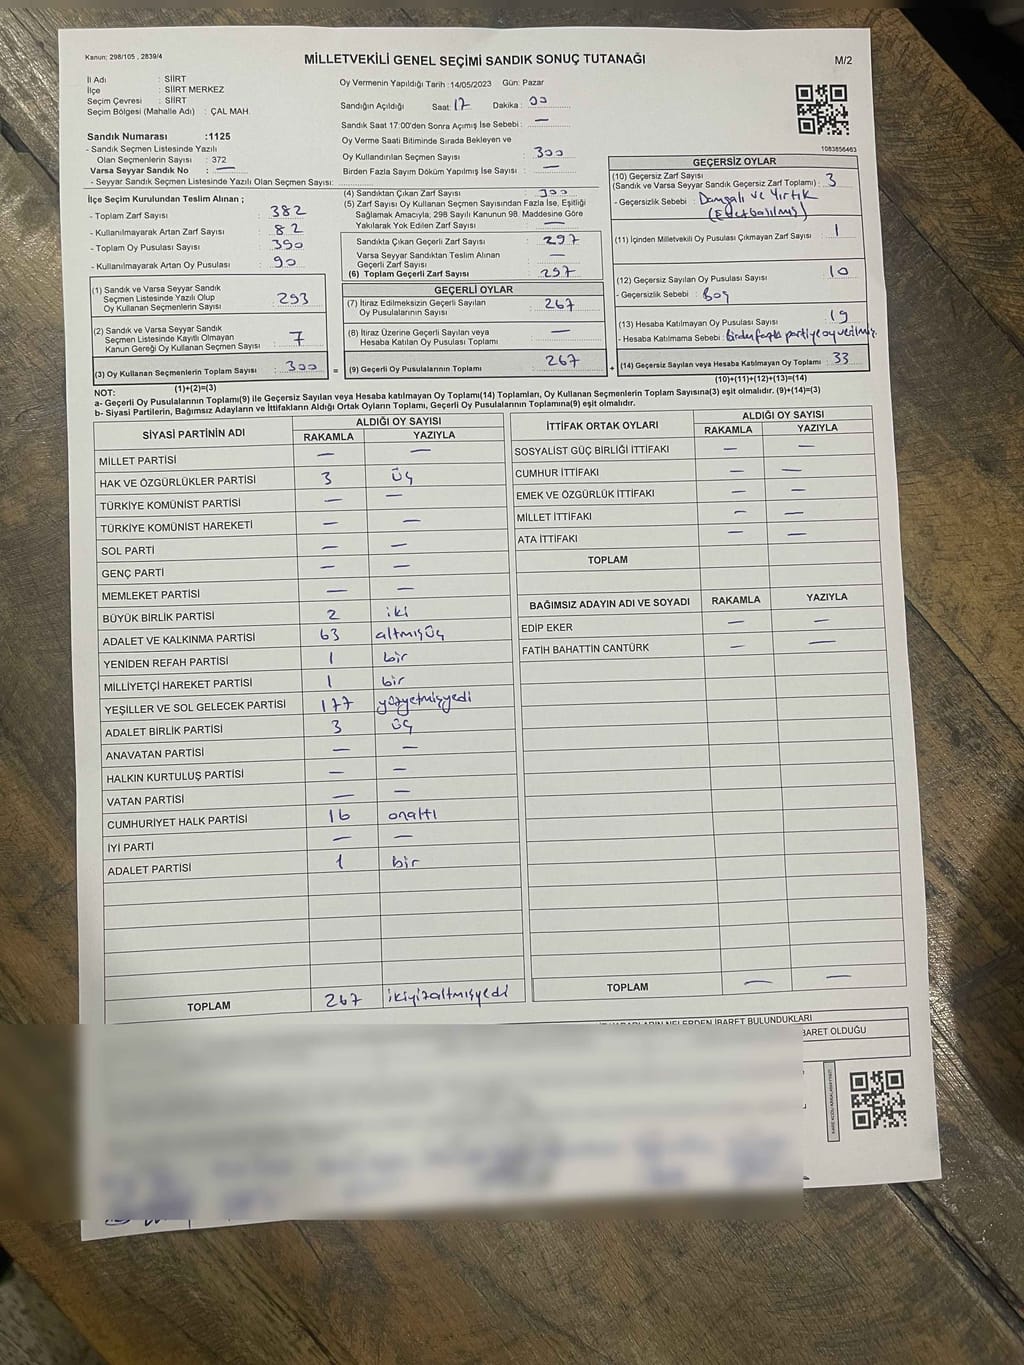 Kanun: 298/105 , 2839/4
MİLLETVEKİLİ GENEL SEÇİMİ SANDIK SONUÇ TUTANAĞI
M/2
İl Adı : SİİRT
İlçe : SİİRT MERKEZ
Seçim Çevresi : SİİRT
Seçim Bölgesi (Mahalle Adı) : ÇAL MAH.
Sandık Numarası :1125
- Sandık Seçmen Listesinde Yazılı
Olan Seçmenlerin Sayısı : 372
Varsa Seyyar Sandık No : —
- Seyyar Sandık Seçmen Listesinde Yazılı Olan Seçmen Sayısı:
Oy Vermenin Yapıldığı Tarih :14/05/2023 Gün: Pazar
Sandığın Açıldığı Saat: 17 Dakika : 00
Sandık Saat 17:00'den Sonra Açımış İse Sebebi : —
Oy Verme Saati Bitiminde Sırada Bekleyen ve
Oy Kullandırılan Seçmen Sayısı : 300
Birden Fazla Sayım Döküm Yapılmış İse Sayısı : —
1083856463
İlçe Seçim Kurulundan Teslim Alınan ;
- Toplam Zarf Sayısı : 382
- Kullanılmayarak Artan Zarf Sayısı : 82
- Toplam Oy Pusulası Sayısı : 390
- Kullanılmayarak Artan Oy Pusulası : 90
(1) Sandık ve Varsa Seyyar Sandık
Seçmen Listesinde Yazılı Olup
Oy Kullanan Seçmenlerin Sayısı : 293
(2) Sandık ve Varsa Seyyar Sandık
Seçmen Listesinde Kayıtlı Olmayan
Kanun Gereği Oy Kullanan Seçmen Sayısı : 7
(3) Oy Kullanan Seçmenlerin Toplam Sayısı : 300
(1)+(2)=(3)
(4) Sandıktan Çıkan Zarf Sayısı : 300
(5) Zarf Sayısı Oy Kullanan Seçmen Sayısından Fazla İse, Eşitliği
Sağlamak Amacıyla; 298 Sayılı Kanunun 98. Maddesine Göre
Yakılarak Yok Edilen Zarf Sayısı : —
Sandıkta Çıkan Geçerli Zarf Sayısı : 297
Varsa Seyyar Sandıktan Teslim Alınan
Geçerli Zarf Sayısı : —
(6) Toplam Geçerli Zarf Sayısı : 297
GEÇERLİ OYLAR
(7) İtiraz Edilmeksizin Geçerli Sayılan
Oy Pusulalarının Sayısı : 267
(8) İtiraz Üzerine Geçerli Sayılan veya
Hesaba Katılan Oy Pusulası Toplamı : —
= (9) Geçerli Oy Pusulalarının Toplamı : 267
GEÇERSİZ OYLAR
(10) Geçersiz Zarf Sayısı
(Sandık ve Varsa Seyyar Sandık Geçersiz Zarf Toplamı) : 3
- Geçersizlik Sebebi : Damgalı ve Yırtık
(11) İçinden Milletvekili Oy Pusulası Çıkmayan Zarf Sayısı : 1
(12) Geçersiz Sayılan Oy Pusulası Sayısı : 10
- Geçersizlik Sebebi : Boş
(13) Hesaba Katılmayan Oy Pusulası Sayısı : 19
- Hesaba Katılmama Sebebi : Birden fazla partiye oy verilmiş.
+ (14) Geçersiz Sayılan veya Hesaba Katılmayan Oy Toplamı : 33
(10)+(11)+(12)+(13)=(14)
NOT:
a- Geçerli Oy Pusulalarının Toplamı(9) ile Geçersiz Sayılan veya Hesaba katılmayan Oy Toplamı(14) Toplamları, Oy Kullanan Seçmenlerin Toplam Sayısına(3) eşit olmalıdır. (9)+(14)=(3)
b- Siyasi Partilerin, Bağımsız Adayların ve İttifakların Aldığı Ortak Oyların Toplamı, Geçerli Oy Pusulalarının Toplamına(9) eşit olmalıdır.
SİYASİ PARTİNİN ADI ALDIĞI OY SAYISI
RAKAMLA YAZIYLA
MİLLET PARTİSİ — —
HAK VE ÖZGÜRLÜKLER PARTİSİ 3 üç
TÜRKİYE KOMÜNİST PARTİSİ — —
TÜRKİYE KOMÜNİST HAREKETİ — —
SOL PARTİ — —
GENÇ PARTİ — —
MEMLEKET PARTİSİ — —
BÜYÜK BİRLİK PARTİSİ 2 iki
ADALET VE KALKINMA PARTİSİ 63 altmışüç
YENİDEN REFAH PARTİSİ 1 bir
MİLLİYETÇİ HAREKET PARTİSİ 1 bir
YEŞİLLER VE SOL GELECEK PARTİSİ 177 yüzyetmişyedi
ADALET BİRLİK PARTİSİ 3 üç
ANAVATAN PARTİSİ — —
HALKIN KURTULUŞ PARTİSİ — —
VATAN PARTİSİ — —
CUMHURİYET HALK PARTİSİ 16 onaltı
İYİ PARTİ — —
ADALET PARTİSİ 1 bir
TOPLAM 267 ikiyüzaltmışyedi
İTTİFAK ORTAK OYLARI ALDIĞI OY SAYISI
RAKAMLA YAZIYLA
SOSYALİST GÜÇ BİRLİĞİ İTTİFAKI — —
CUMHUR İTTİFAKI — —
EMEK VE ÖZGÜRLÜK İTTİFAKI — —
MİLLET İTTİFAKI — —
ATA İTTİFAKI — —
TOPLAM
BAĞIMSIZ ADAYIN ADI VE SOYADI RAKAMLA YAZIYLA
EDİP EKER — —
FATİH BAHATTİN CANTÜRK — —
TOPLAM — —
NELERDEN İBARET BULUNDUKLARI
BARET OLDUĞU